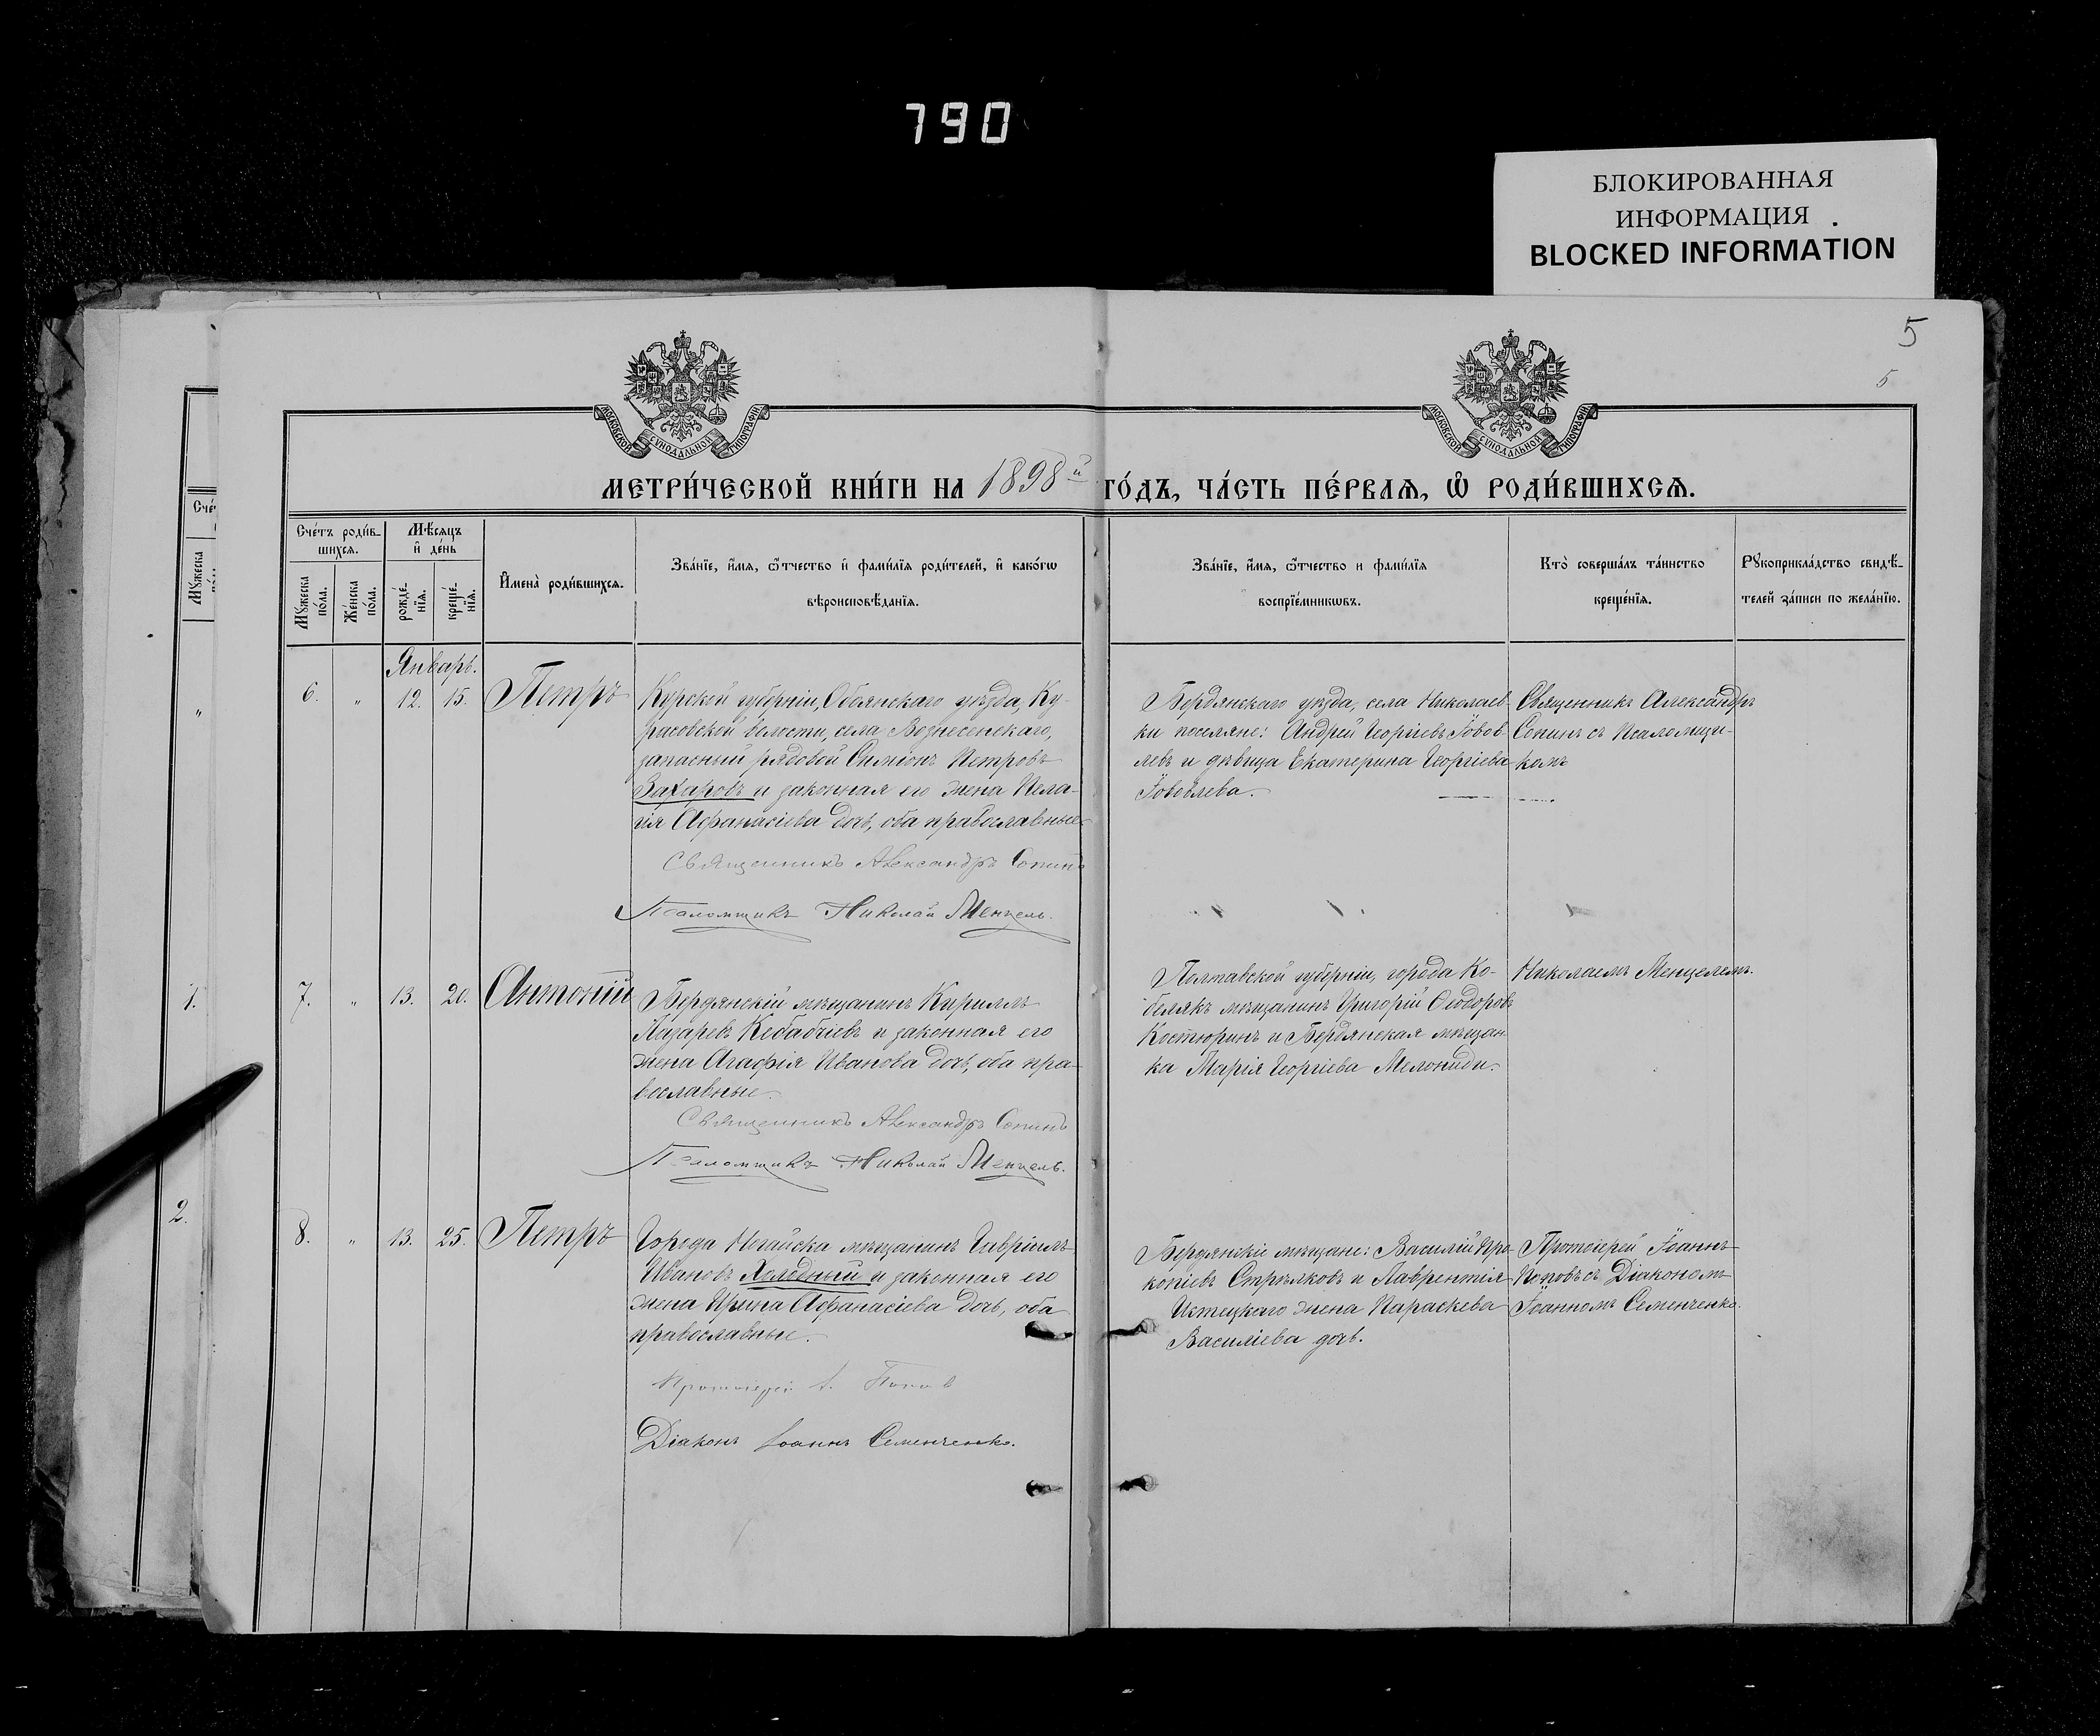 790
БЛОКИРОВАННАЯ
ИНФОРМАЦИЯ
BLOCKED INFORMATION
5
5
МОСКОВСКОЙ СУНОДАЛЬНОЙ ТИПОГРАФІИ
МОСКОВСКОЙ СУНОДАЛЬНОЙ ТИПОГРАФІИ
МЕТРИ́ЧЕСКОЙ КНИ́ГИ НА 1898й ГО́ДЪ, ЧА́СТЬ ПЕ́РВАѦ, Ѡ҆ РОДИ́ВШИХСѦ.
Сче́тъ роди́в-
шихсѧ.
Мѣ́сѧцъ
и҆ де́нь
Мꙋ́жеска
по́ла.
Же́нска
по́ла.
рожде́-
нїѧ.
креще́-
нїѧ.
И҆мена̀ роди́вшихсѧ.
Зва́нїе, и҆́мѧ, ѻ҆́тчество и҆ фами́лїѧ роди́телей, и҆ како́гѡ
вѣроисповѣ́данїѧ.
Зва́нїе, и҆́мѧ, ѻ҆́тчество и фами́лїѧ
воспрїе́мникѡвъ.
Кто̀ соверша́лъ та́инство
креще́нїѧ.
Рꙋкоприкла́дство свидѣ́-
телей за́писи по жела́нїю.
Январь.
6. " 12. 15. Петръ
Курской губерніи, Обоянскаго уѣзда, Ку-
рисовской волости, села Вознесенскаго,
запасный рядовой Симеонъ Петровъ
Захаровъ и законная его жена Пела-
гія Афанасіева дочь, оба православные.
Священникъ Александръ Сопинъ
Псаломщикъ Николай Менцель.
Бердянскаго уѣзда, села Николаев-
ки поселяне: Андрей Георгіевъ Іовов-
левъ и дѣвица Екатерина Георгіева
Іововлева.
Священникъ Александръ
Сопинъ съ Псаломщи-
комъ
7. " 13. 20. Антоній
Бердянскій мѣщанинъ Кириллъ
Лазаревъ Кебабчіевъ и законная его
жена Агафія Иванова дочь, оба пра-
вославные.
Священникъ Александръ Сопинъ
Псаломщикъ Николай Менцель.
Полтавской губерніи, города Ко-
белякъ мѣщанинъ Григорій Ѳеодоровъ
Костюринъ и Бердянская мѣщан-
ка Марія Георгіева Мелониди.
Николаемъ Менцелемъ.
8. " 13. 25. Петръ
Города Ногайска мѣщанинъ Гавріилъ
Ивановъ Холодный и законная его
жена Ирина Афанасіева дочь, оба
православные.
Протоіерей І. Попов
Діаконъ Іоаннъ Семенченко.
Бердянскіе мѣщане: Василій Про-
копіевъ Стрѣлковъ и Лаврентія
жена Параскева
Василіева дочь.
Протоіерей Іоаннъ
Поповъ съ Діакономъ
Іоанномъ Семенченко.
1.
2.